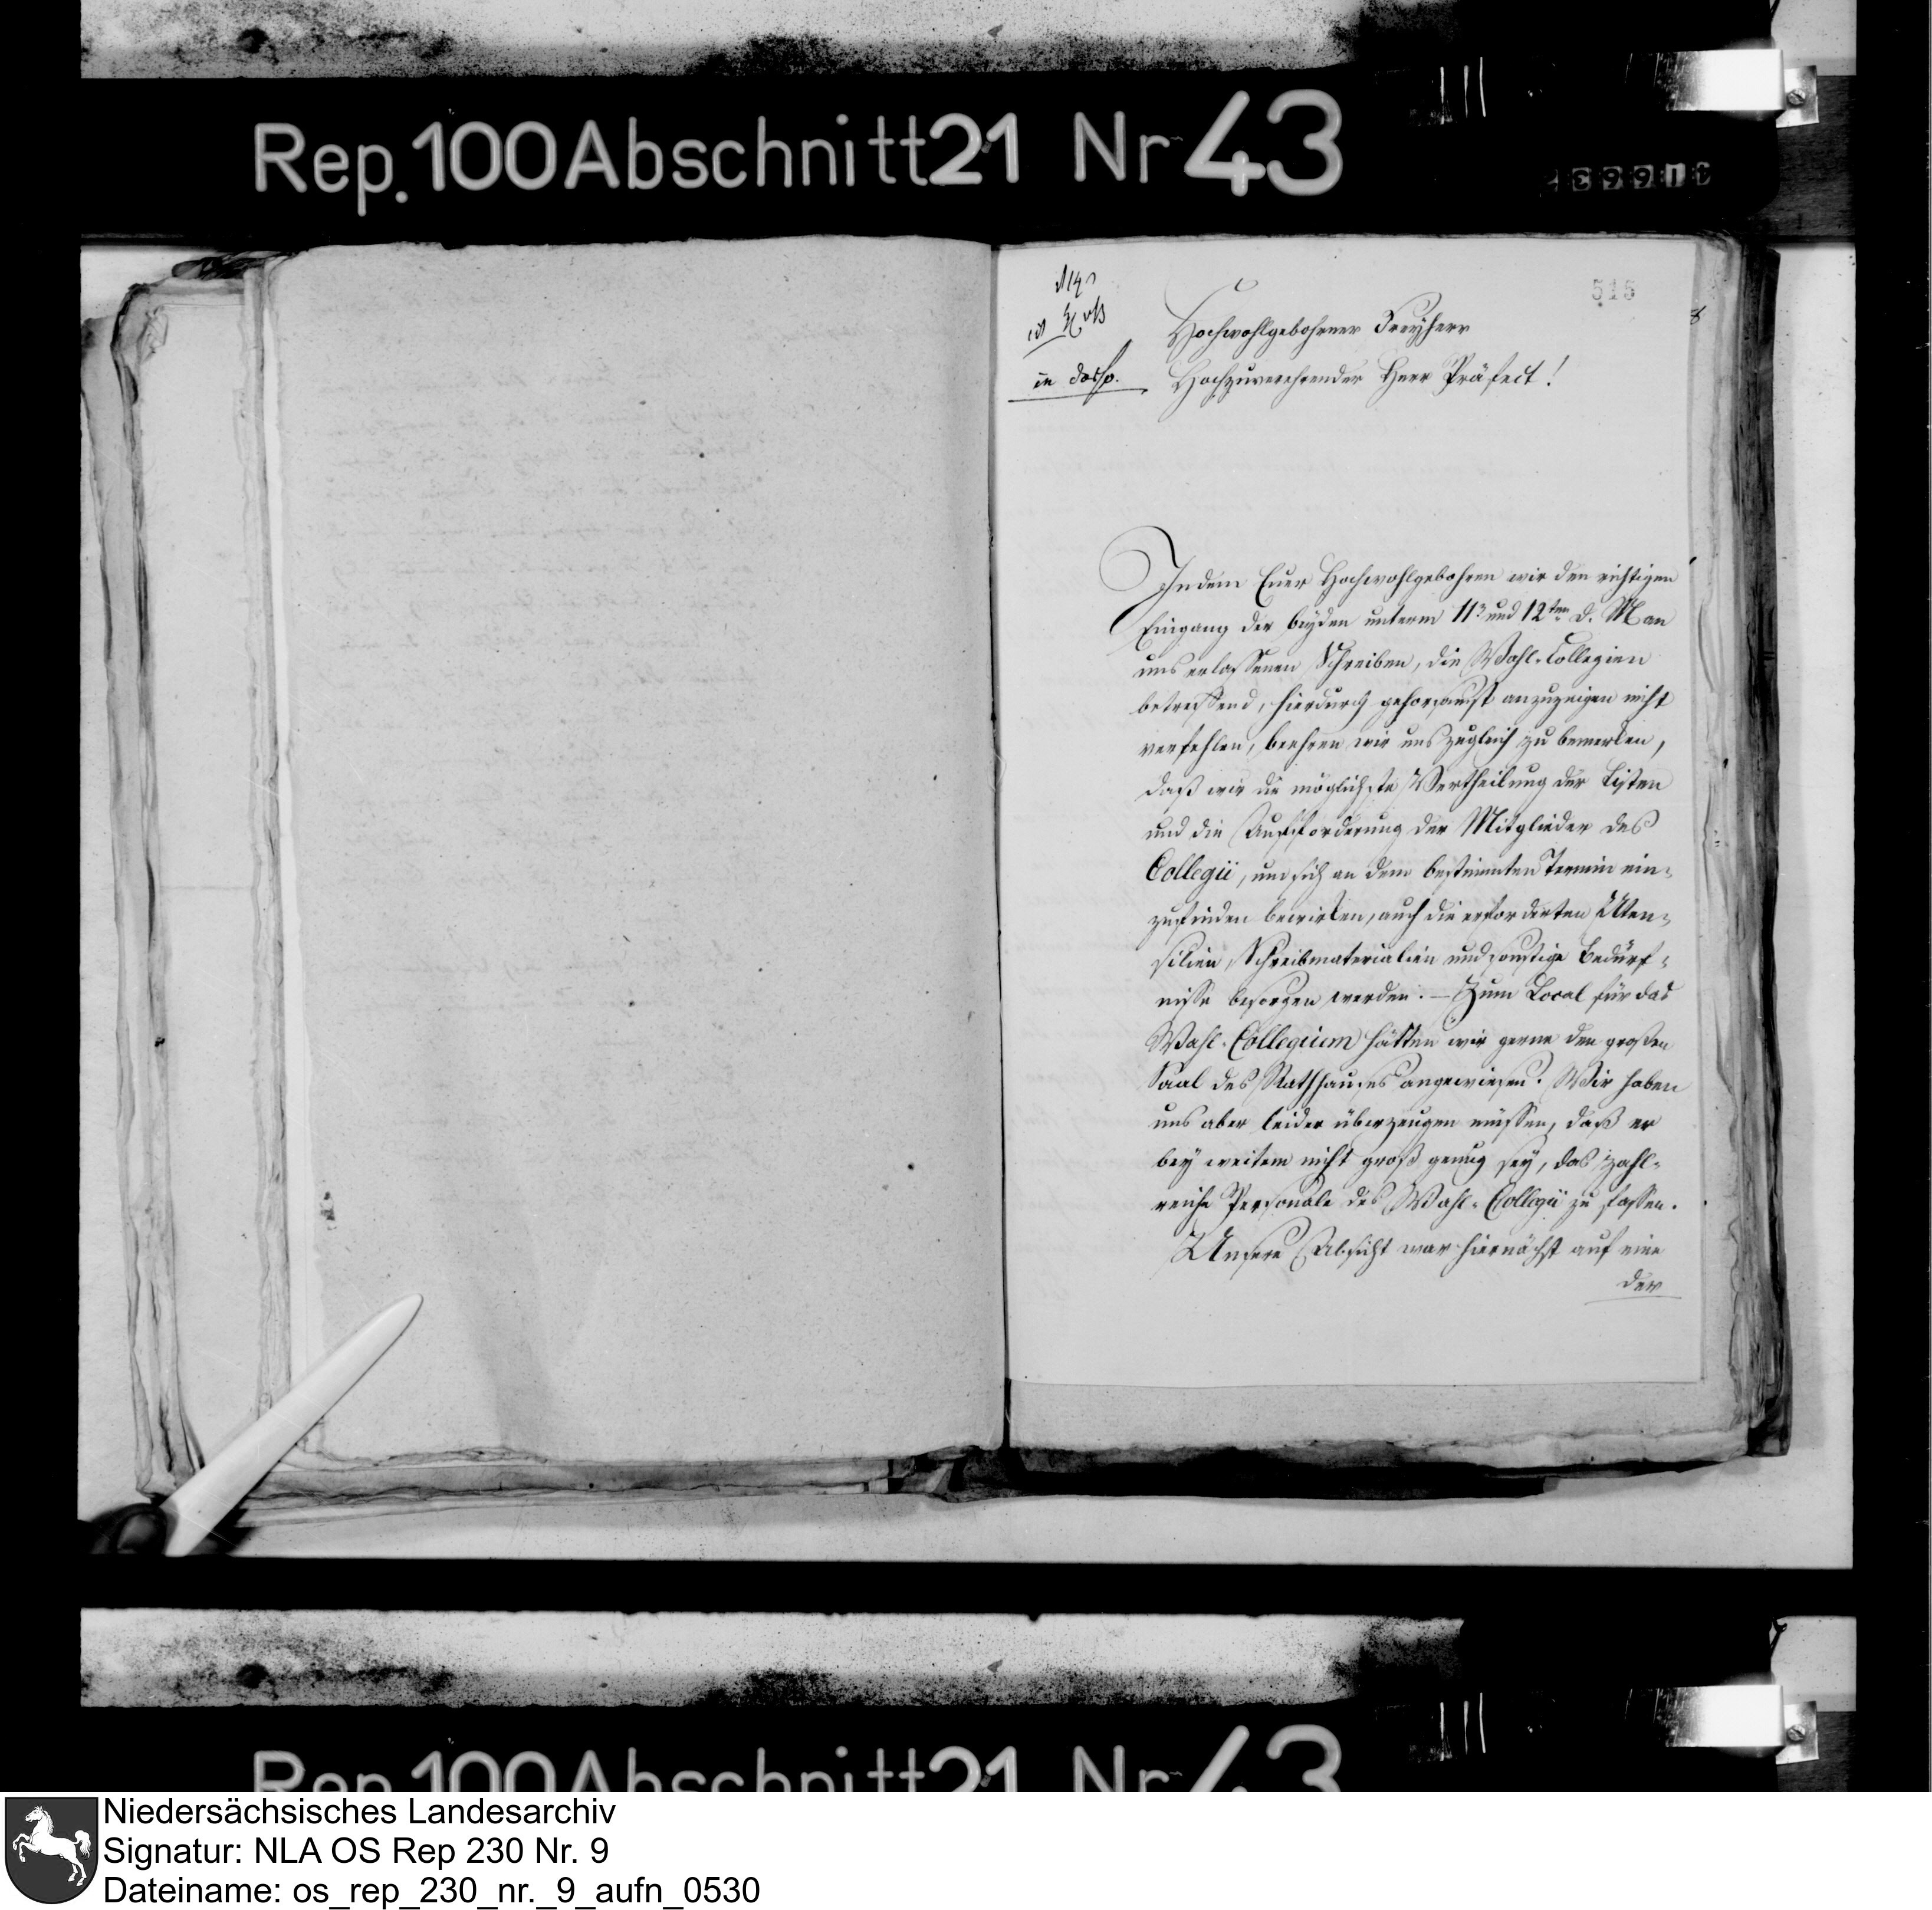 Rep. 100 Abschnitt 21 Nr 43
515
8
Hochwohlgebohrner Freyherr
Hochzuverehrender Herr Präfect!
Indem Euer Hochwohlgebohren wir den richtigen
Eingang der beyden unterm 11. und 12ten d. M an
uns erlassenen Schreiben, die Wahl-Collegien
betreffend, hierdurch gehorsamst anzuzeigen nicht
verfehlen, beehren wir uns zugleich zu bemerken,
daß wir die möglichste Vertheilung der Listen
und die Aufforderung der Mitglieder des
Collegii, um sich an dem bestimmten Termin ein-
zufinden bewirken, auch die erforderten Uten-
silien, Schreibmaterialien und sonstige Bedürf-
nisse besorgen werden. — Zum Local für das
Wahl-Collegium hätten wir gerne den großen
Saal des Rathhauses angewiesen. Wir haben
uns aber leider überzeugen müssen, daß er
bey weitem nicht groß genug sey, das zahl-
reiche Personale des Wahl-Collegii zu fassen.
Unsere Absicht war hiernächst auf eine
der
Rep. 100 Abschnitt 21 Nr 43
Niedersächsisches Landesarchiv
Signatur: NLA OS Rep 230 Nr. 9
Dateiname: os_rep_230_nr._9_aufn_0530